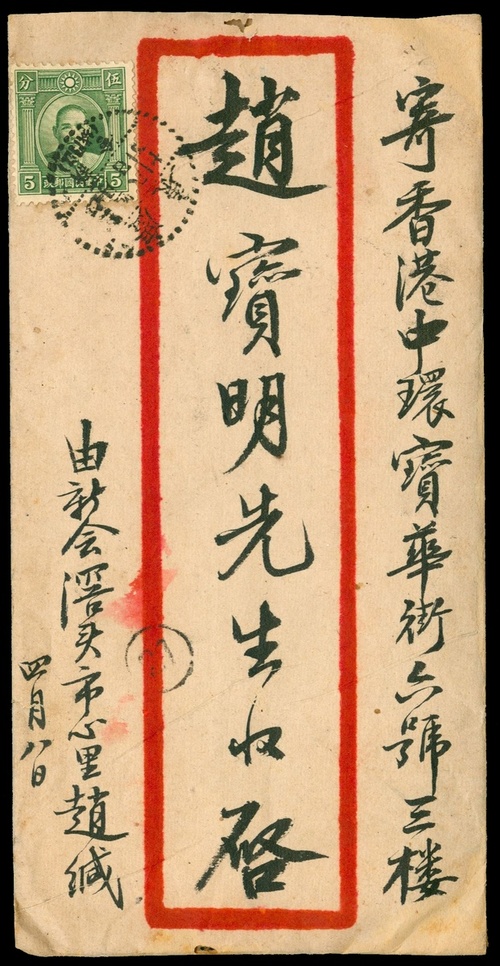 寄香港中環寶華街六號三楼
趙寶明先生収啓
由新会滘头市心里趙缄
四月八日
伍分
5 5